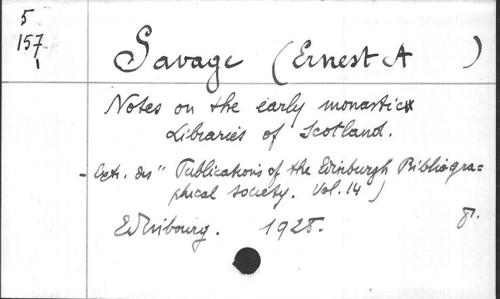 5
157
1
Savage (Ernest A )
Notes on the early monastic
Libraries of Scotland.
- Extr. des "Publications of the Edinburgh Bibliogra=
phical Society. Vol. 14)
Edinbourg. 1928. 8º.